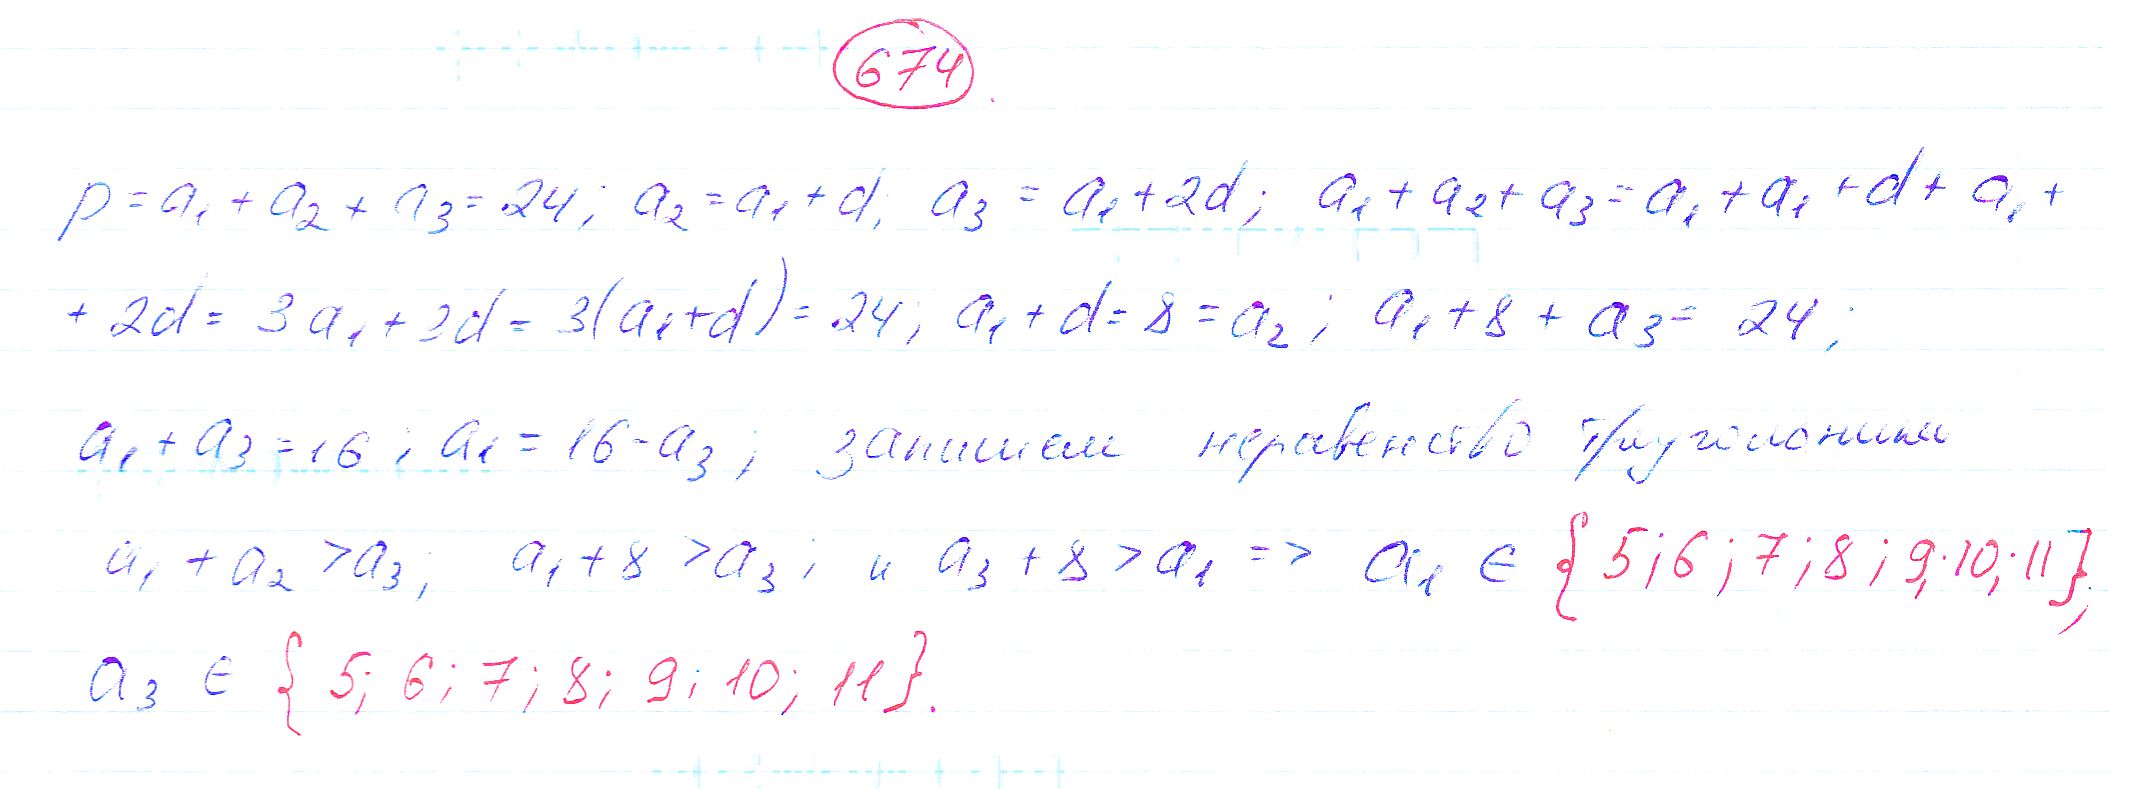 674
p = a₁ + a₂ + a₃ = 24; a₂ = a₁ + d; a₃ = a₁ + 2d; a₁ + a₂ + a₃ = a₁ + a₁ + d + a₁ +
+ 2d = 3a₁ + 3d = 3(a₁ + d) = 24; a₁ + d = 8 = a₂; a₁ + 8 + a₃ = 24;
a₁ + a₃ = 16; a₁ = 16 - a₃; запишем неравенство треугольника
a₁ + a₂ > a₃; a₁ + 8 > a₃; и a₃ + 8 > a₁ => a₁ ∈ {5; 6; 7; 8; 9; 10; 11};
a₃ ∈ {5; 6; 7; 8; 9; 10; 11}.